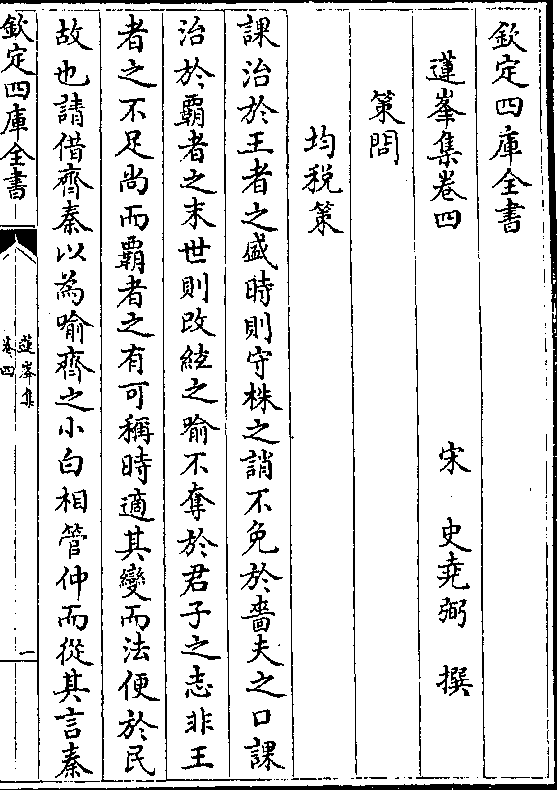 欽定四庫全書
蓮峯集卷四
宋 史堯弼 撰
策問
均税策
課治於王者之盛時則守株之誚不免於嗇夫之口課
治於覇者之末世則改絃之喻不奪於君子之志非王
者之不足尚而覇者之有可稱時適其變而法便於民
故也請借齊秦以為喻齊之小白相管仲而從其言秦
欽定四庫全書
蓮峯集
卷四
一